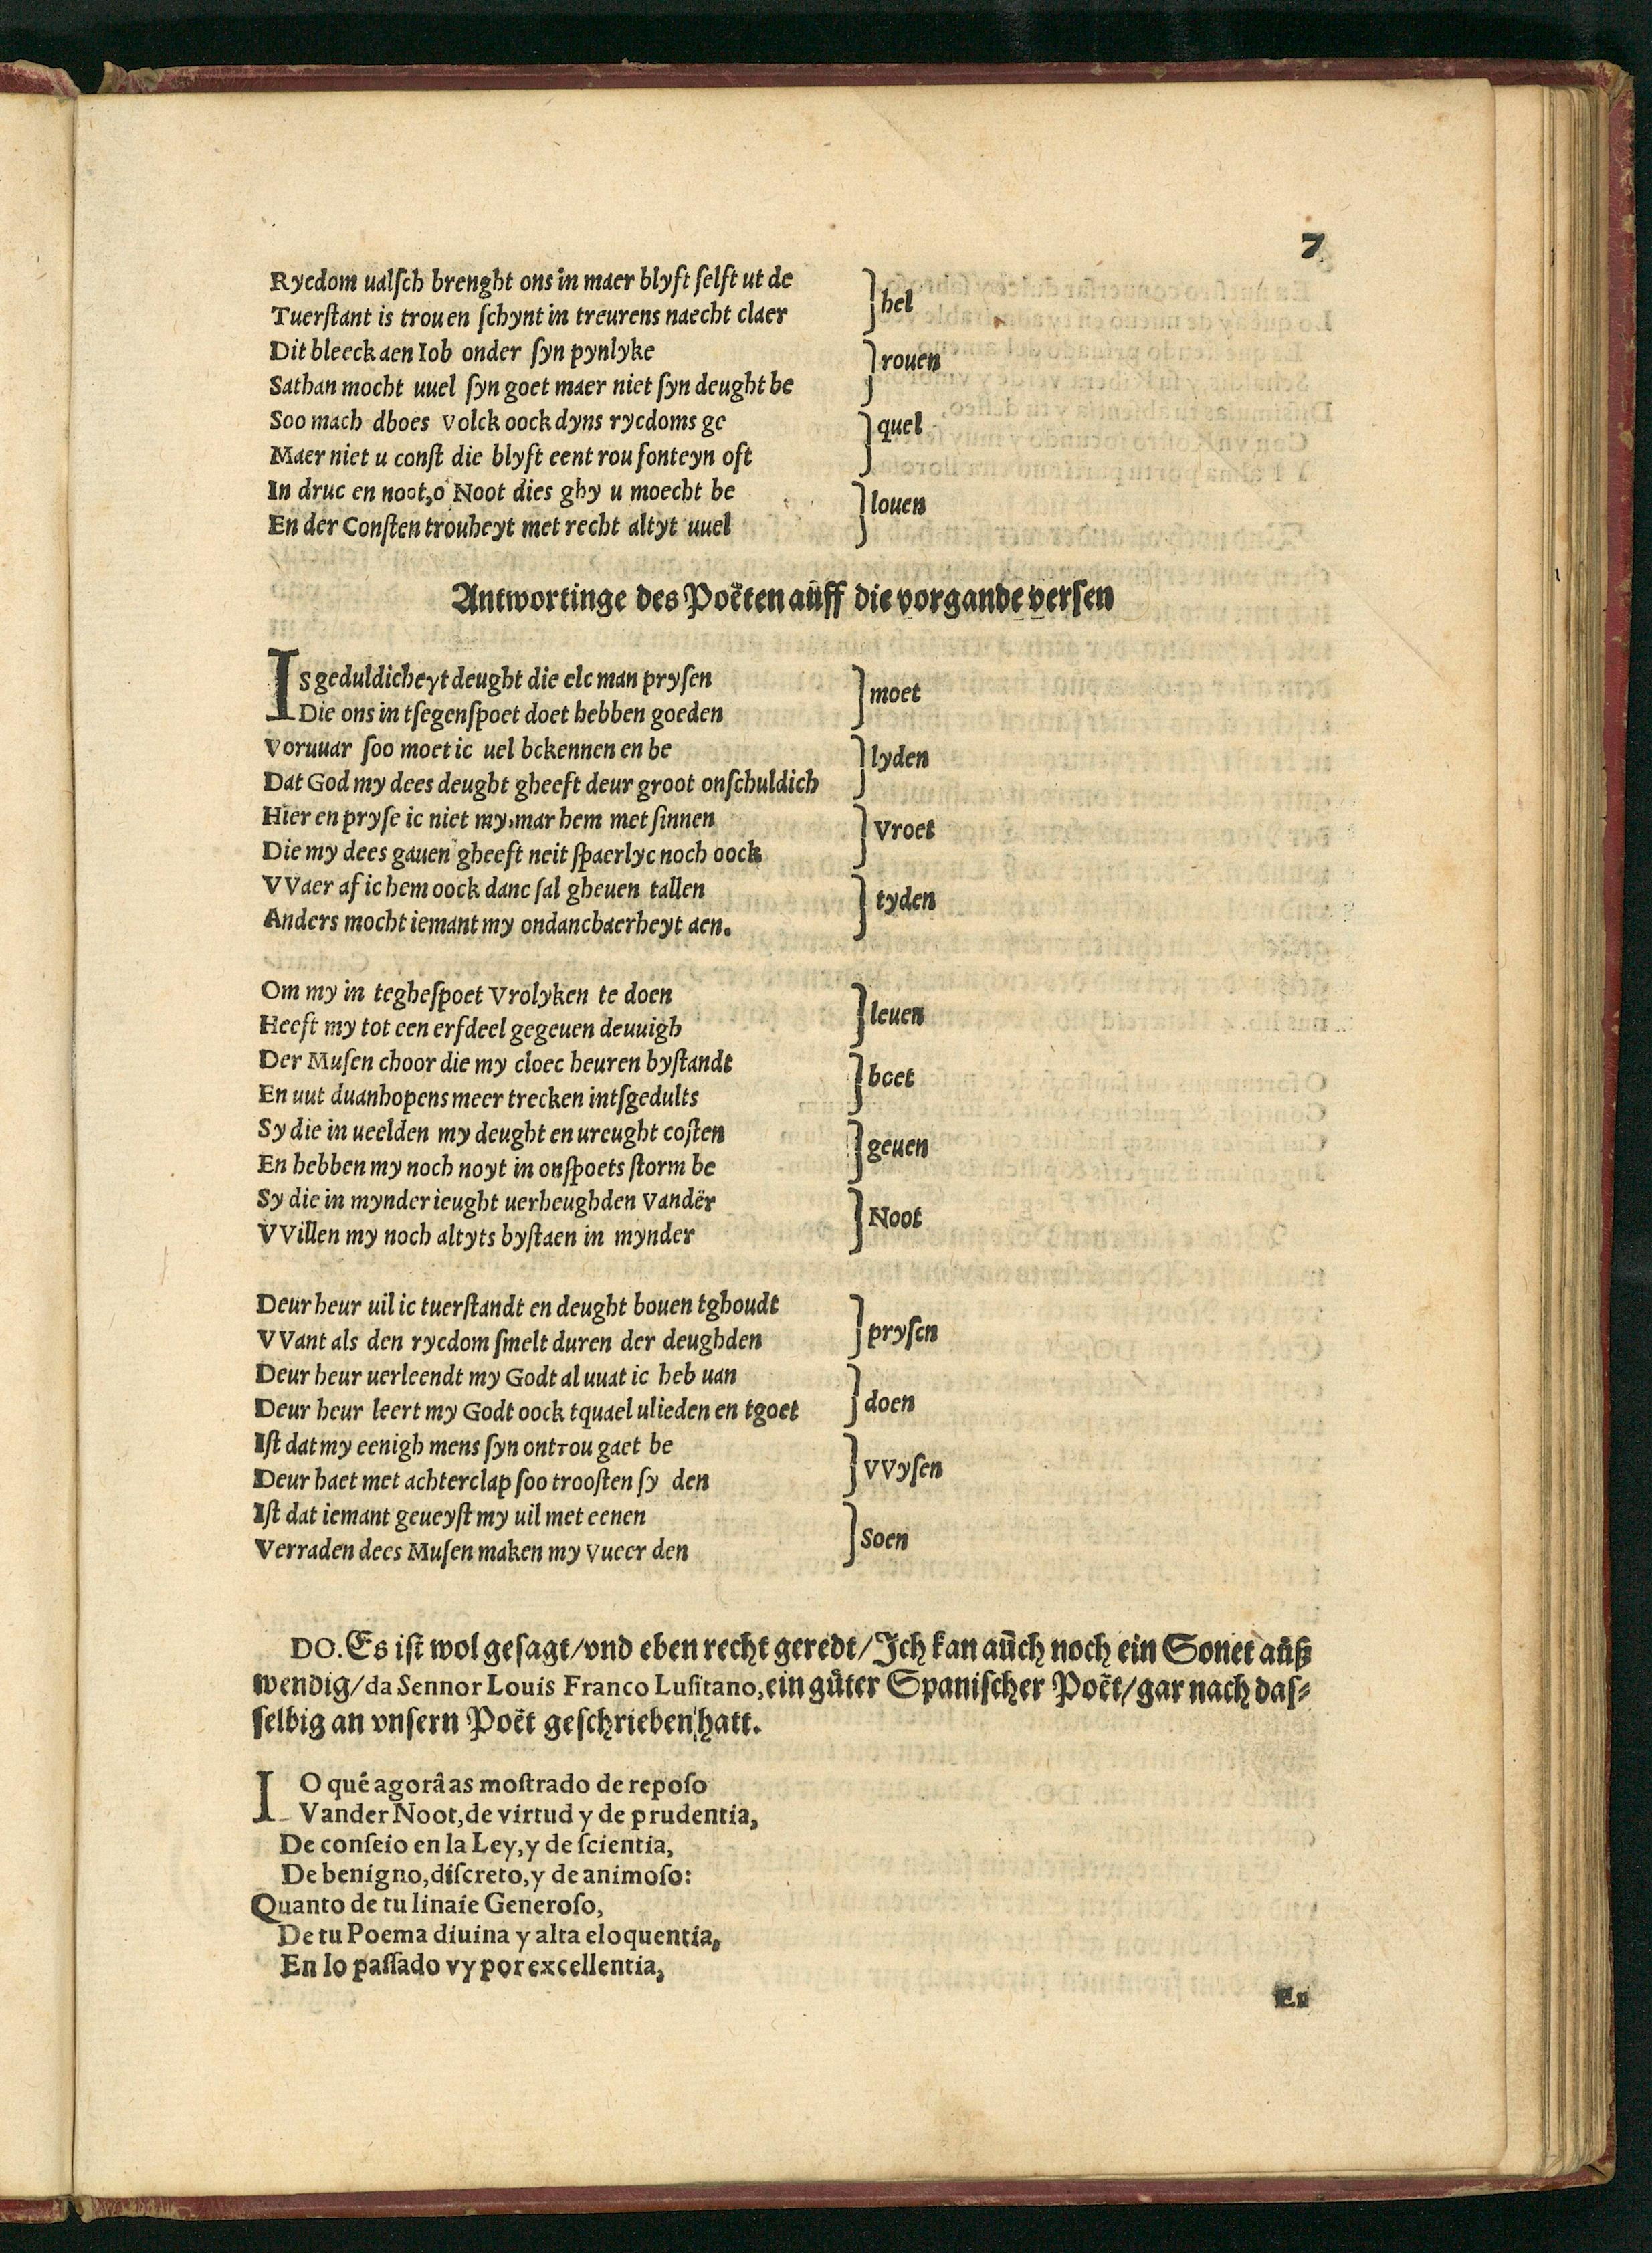 7
Rycdom ualſch brenght ons in maer blyft ſelft ut de
Tuerſtant is trouen ſchynt in treurens naecht claer
} hel
Dit bleeck aen Iob onder ſyn pynlyke
Sathan mocht uuel ſyn goet maer niet ſyn deught be
} rouen
Soo mach dboes volck oock dyns rycdoms ge
Maer niet u conſt die blyft eent rou fonteyn oft
} quel
In druc en noot, o Noot dies ghy u moecht be
En der Conſten trouheyt met recht altyt uuel
} louen
Antwortinge des Poëten aůff die vorgande verſen
Is geduldicheyt deught die elc man pryſen
Die ons in tſegenſpoet doet hebben goeden
} moet
Voruuar ſoo moet ic uel bckennen en be
Dat God my dees deught gheeft deur groot onſchuldich
} lyden
Hier en pryſe ic niet my, mar hem met ſinnen
Die my dees gauen gheeft neit ſpaerlyc noch oock
} Vroet
VVaer af ic hem oock danc ſal gheuen tallen
Anders mocht iemant my ondancbaerheyt aen.
} tyden
Om my in tegheſpoet Vrolyken te doen
Heeft my tot een erfdeel gegeuen deuuigh
} leuen
Der Muſen choor die my cloec heuren byſtandt
En uut duanhopens meer trecken intſgedults
} boet
Sy die in ueelden my deught en ureught coſten
En hebben my noch noyt in onſpoets ſtorm be
} geuen
Sy die in mynder ieught uerheughden Vandër
VVillen my noch altyts byſtaen in mynder
} Noot
Deur heur uil ic tuerſtandt en deught bouen tghoudt
VVant als den rycdom ſmelt duren der deughden
} pryſen
Deur heur uerleendt my Godt al uuat ic heb uan
Deur heur leert my Godt oock tquael ulieden en tgoet
} doen
Iſt dat my eenigh mens ſyn ontrou gaet be
Deur haet met achterclap ſoo trooſten ſy den
} VVyſen
Iſt dat iemant geueyſt my uil met eenen
Verraden dees Muſen maken my vueer den
} Soen
DO. Es iſt wol geſagt/ vnd eben recht geredt/ Ich kan aůch noch ein Sonet aůß
wendig/ da Sennor Louis Franco Luſitano, ein gůter Spaniſcher Poët/ gar nach daſ⸗
ſelbig an vnſern Poët geſchrieben hatt.
IO qué agorâ as moſtrado de repoſo
Vander Noot, de virtud y de prudentia,
De conſeio en la Ley, y de ſcientia,
De benigno, diſcreto, y de animoſo:
Quanto de tu linaie Generoſo,
De tu Poema diuina y alta eloquentia,
En lo paſſado vy por excellentia,
En